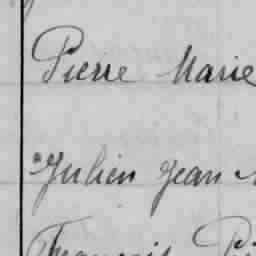 Pierre Marie
Julien Jean
François